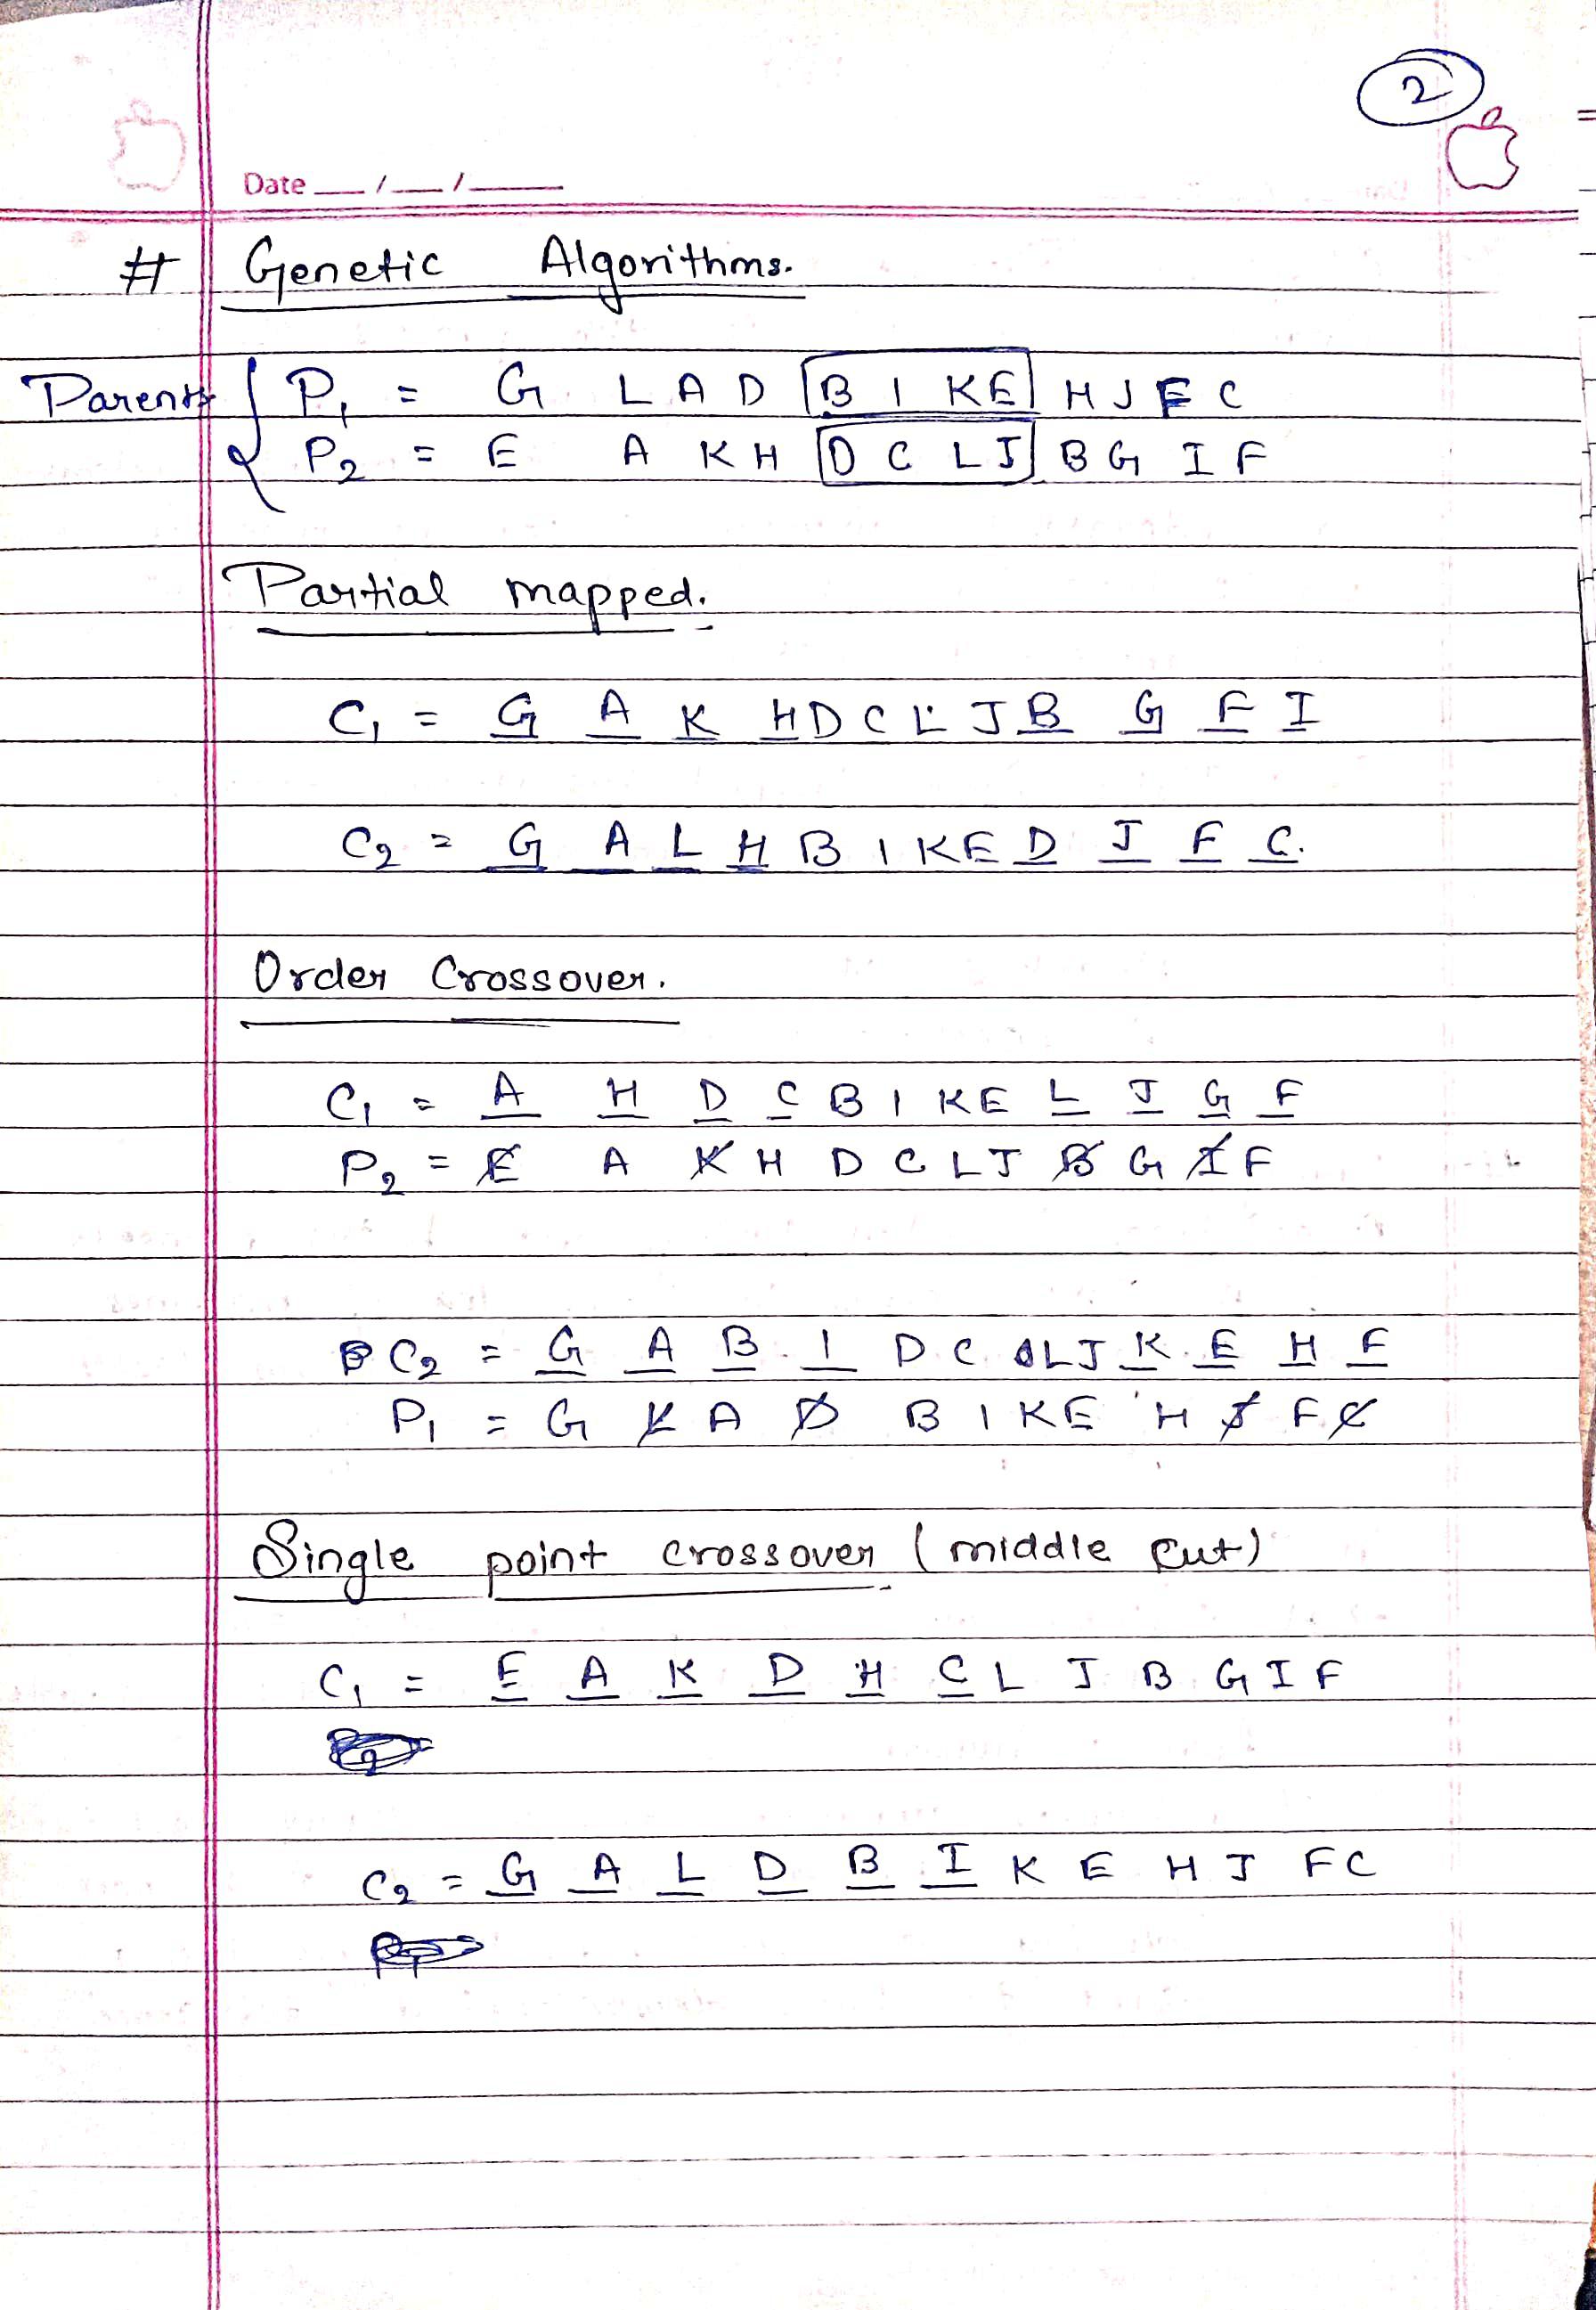 2
Date __/__/____
# Genetic Algorithms.
Parents { P1 = G L A D B I K E H J F C
P2 = E A K H D C L J B G I F
Partial mapped.
C1 = G A K H D C L J B G F I
C2 = G A L H B I K E D J F C.
Order Crossover.
C1 = A H D C B I K E L J G F
P2 = E A K H D C L J B G I F
C2 = G A B I D C L J K E H F
P1 = G L A D B I K E H J F C
Single point crossover (middle cut)
C1 = E A K D H C L J B G I F
C2 = G A L D B I K E H J F C